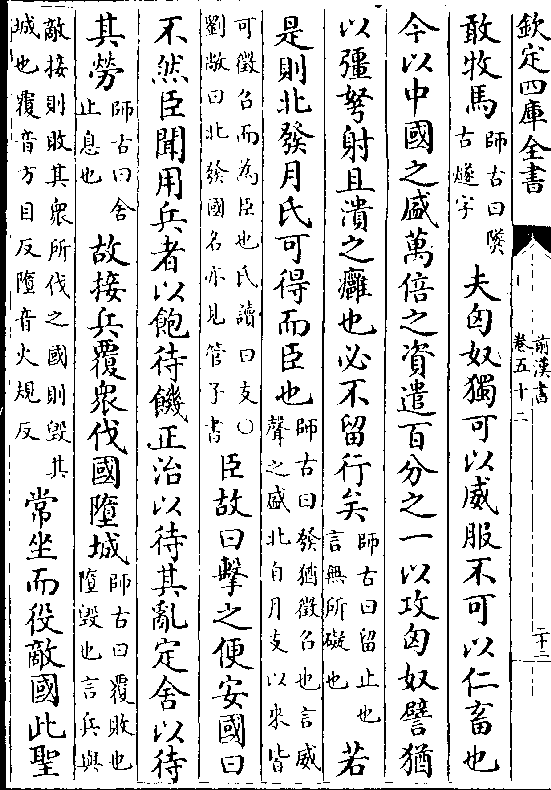 欽定四庫全書
前漢書
卷五十二
二十二
敢牧馬師古曰隧
古燧字夫匈奴獨可以威服不可以仁畜也
今以中國之盛萬倍之資遣百分之一以攻匈奴譬猶
以彊弩射且潰之癰也必不留行矣師古曰留止也
言無所礙也若
是則北發月氏可得而臣也師古曰發猶徵召也言威
聲之盛北自月支以來皆
可徵召而為臣也氏讀曰支○
劉敞曰北發國名亦見管子書臣故曰擊之便安國曰
不然臣聞用兵者以飽待饑正治以待其亂定舍以待
其勞師古曰舍
止息也故接兵覆衆伐國墮城師古曰覆敗也
墮毀也言兵與
敵接則敗其衆所伐之國則毀其
城也覆音方目反墮音火規反常坐而役敵國此聖